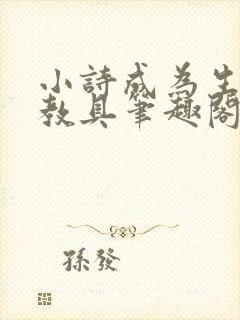 小詩成為生
教具筆趣閣
孫發